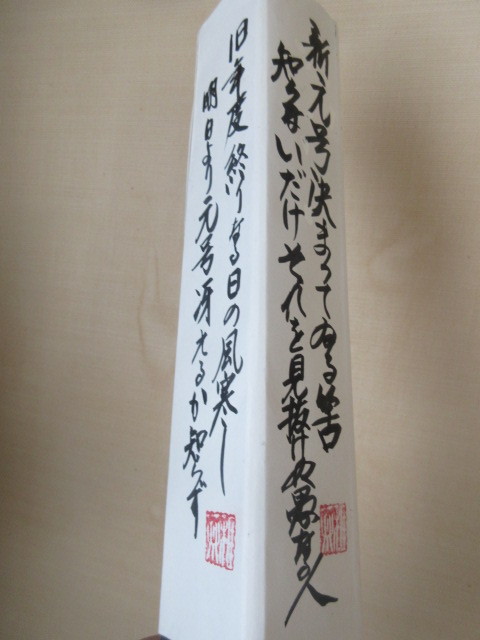 新元号決まってゐる筈
知らないだけそれを見抜けぬ愚有る人
旧年度終りなる日の風寒し
明日より元号冴えるか知らず